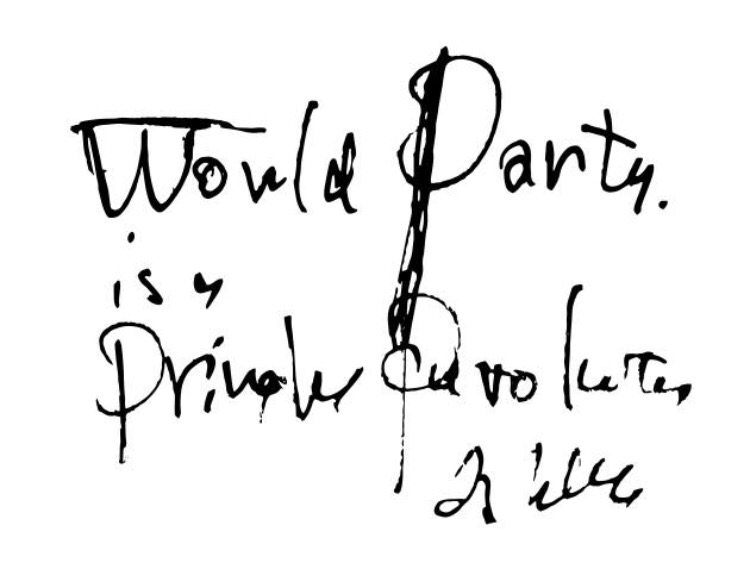 World Party.
is a
Private Revolution